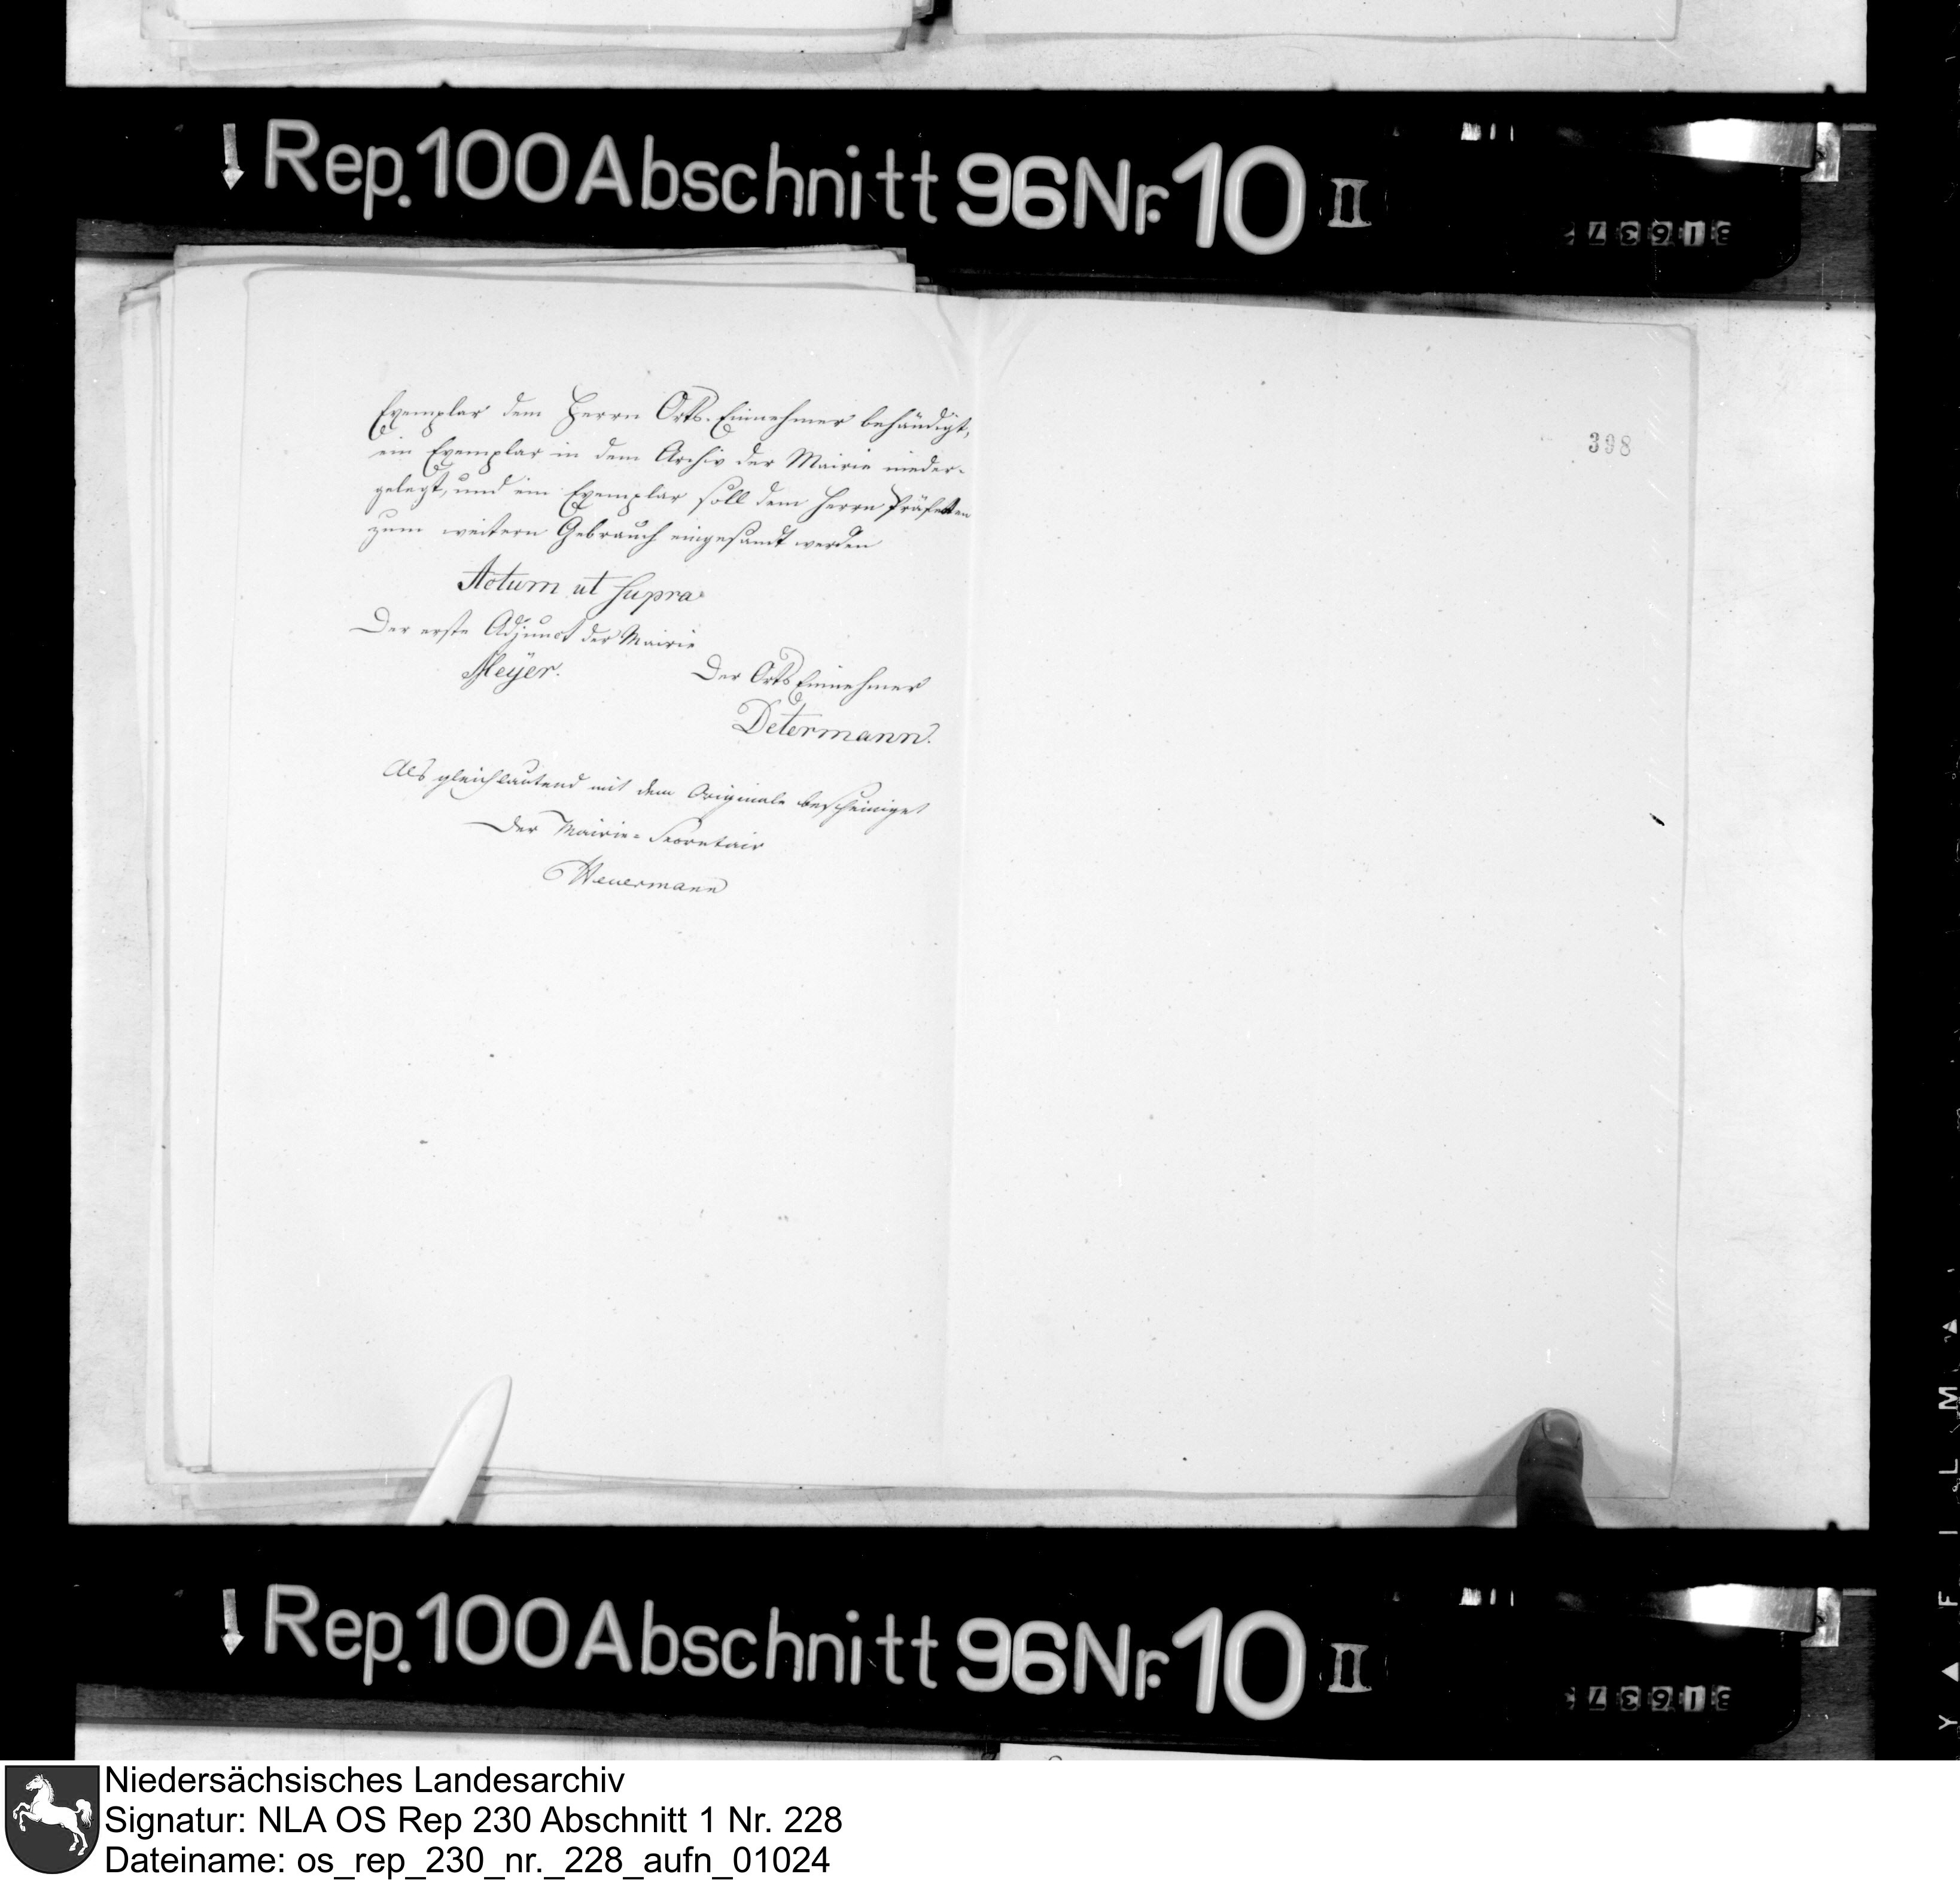 Rep. 100 Abschnitt 96 Nr. 10 II
31637
Exemplar dem Herrn Orts-Einnehmer behändigt,
ein Exemplar in dem Archiv der Mairie nieder-
gelegt, und ein Exemplar soll dem Herrn Präfekten
zum weitern Gebrauch eingesandt werden
Actum ut supra
Der erste Adjunct der Mairie
Meÿer.
Der Orts Einnehmer
Determann.
Als gleichlautend mit dem Originale bescheiniget
Der Mairie-Secretair
Heuermann
398
Rep. 100 Abschnitt 96 Nr. 10 II
31637
Niedersächsisches Landesarchiv
Signatur: NLA OS Rep 230 Abschnitt 1 Nr. 228
Dateiname: os_rep_230_nr._228_aufn_01024